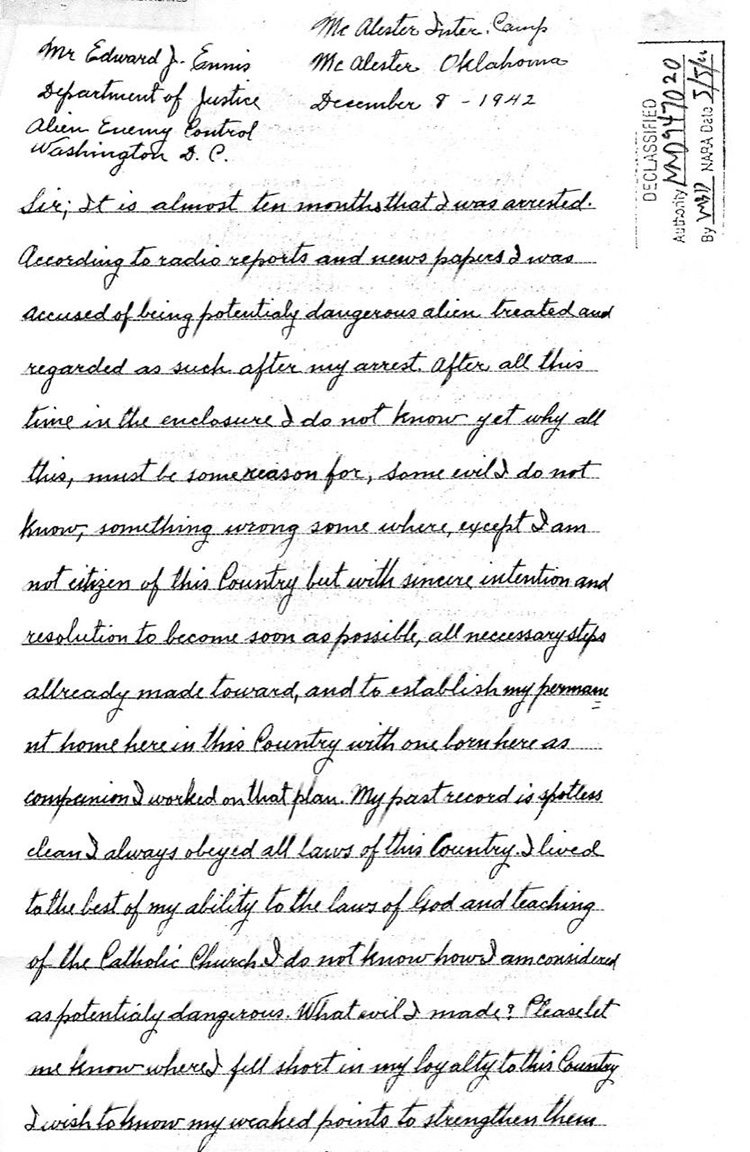 Mc Alester Inter. Camp
Mr Edward J. Ennis
Mc Alester Oklahoma
Department of Justice
December 8 - 1942
Alien Enemy Control
Washington D. C.
DECLASSIFIED
Authority NND947020
By NARA Date
Sir; It is almost ten months that I was arrested.
According to radio reports and news papers I was
accused of being potentialy dangerous alien treated and
regarded as such after my arrest. After all this
time in the enclosure I do not know yet why all
this, must be some reason for, some evil I do not
know, something wrong some where, except I am
not citizen of this Country but with sincere intention and
resolution to become soon as possible, all neccessary steps
allready made toward, and to establish my permane
nt home here in this Country with one born here as
companion I worked on that plan. My past record is spotless
clean I always obeyed all laws of this Country. I lived
to the best of my ability to the laws of God and teaching
of the Catholic Church. I do not know how I am considered
as potentialy dangerous. What evil I made? Please let
me know where I fell short in my loyalty to this Country
I wish to know my weaked points to strengthen them